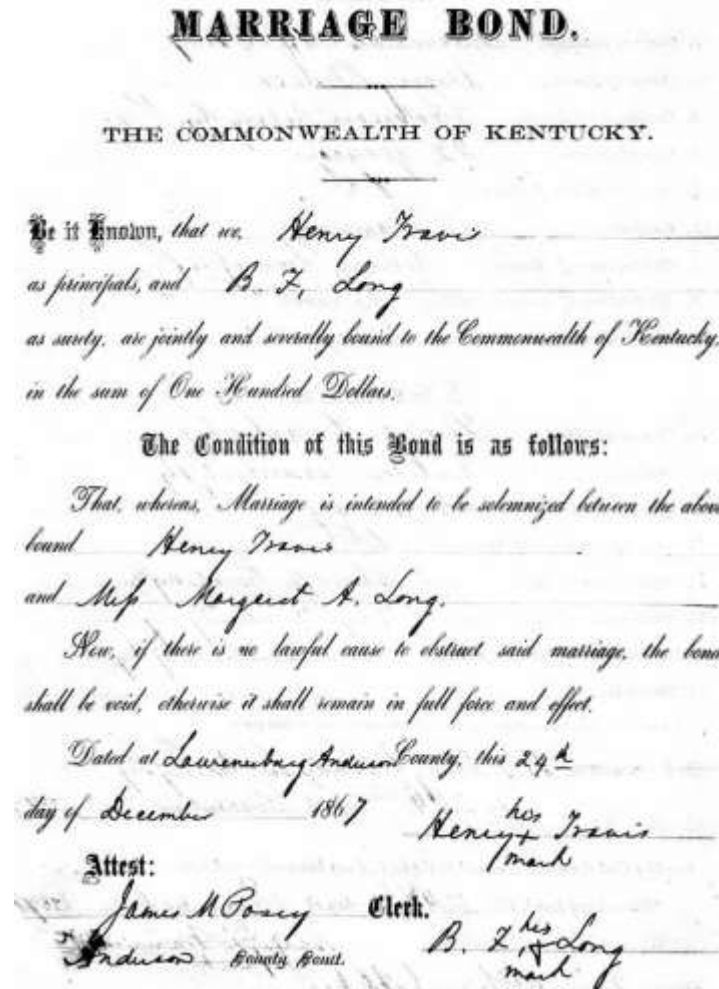 MARRIAGE BOND.
THE COMMONWEALTH OF KENTUCKY.
Be it Known, that we, Henry Travis
as principals, and B. F. Long
as surety, are jointly and severally bound to the Commonwealth of Kentucky,
in the sum of One Hundred Dollars.
The Condition of this Bond is as follows:
That, whereas, Marriage is intended to be solemnized between the above
bound Henry Travis
and Miss Margaret A. Long.
Now, if there is no lawful cause to obstruct said marriage, the bond
shall be void, otherwise it shall remain in full force and effect.
Dated at Lawrenceburg Anderson County, this 24th
day of December 1867
his
Henry x Travis
mark
Attest:
James M Posey Clerk.
Anderson County Court.
his
B. F. x Long
mark